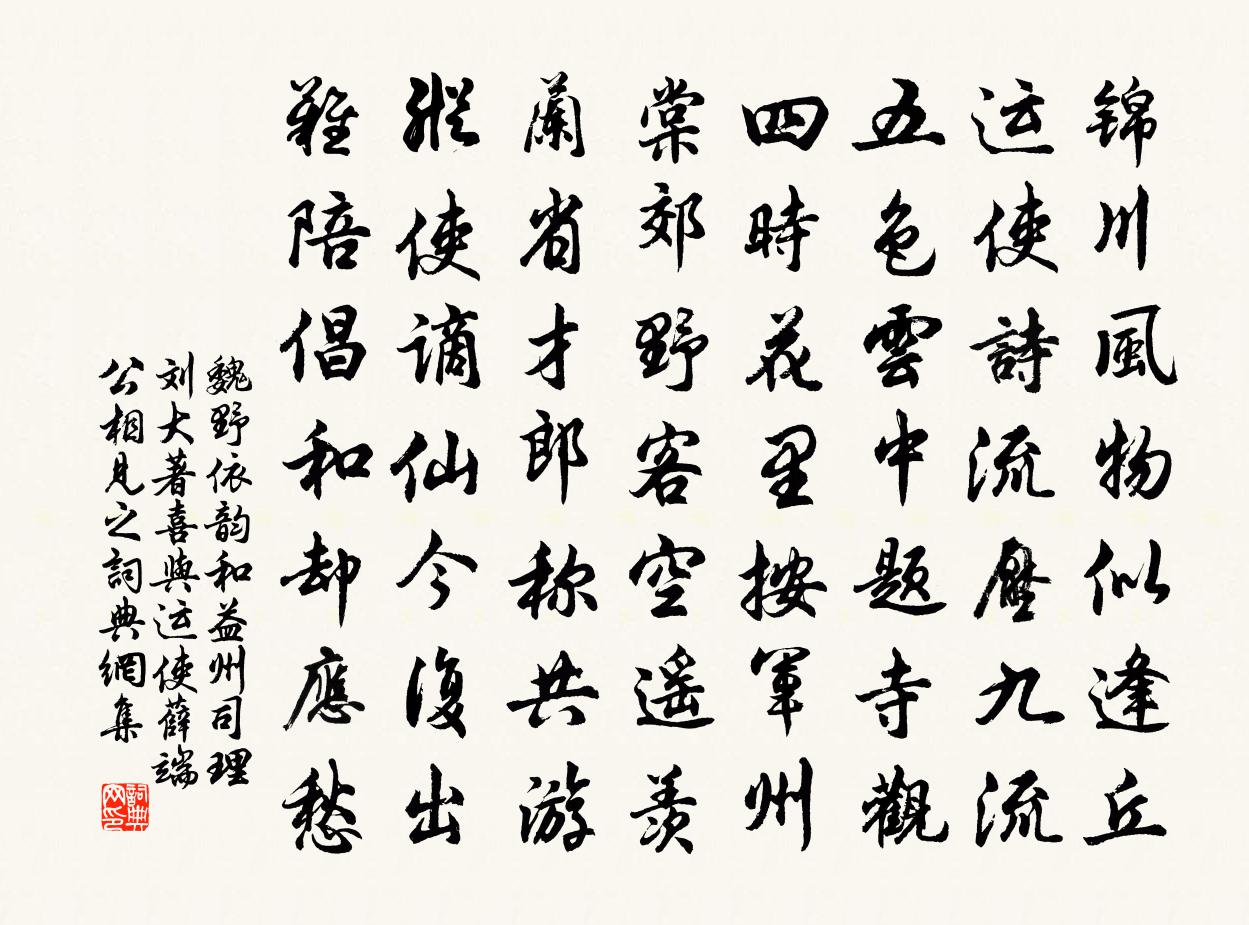 锦川風物似逢丘
运使詩流壓九流
五色雲中题寺觀
四時花里按軍州
棠郊野客空遥羨
蘭省才郎称共游
縱使谪仙今復出
難陪倡和却應愁
魏野依韵和益州司理
刘大著喜與运使薛端
公相見之詞典網集
詞典网印